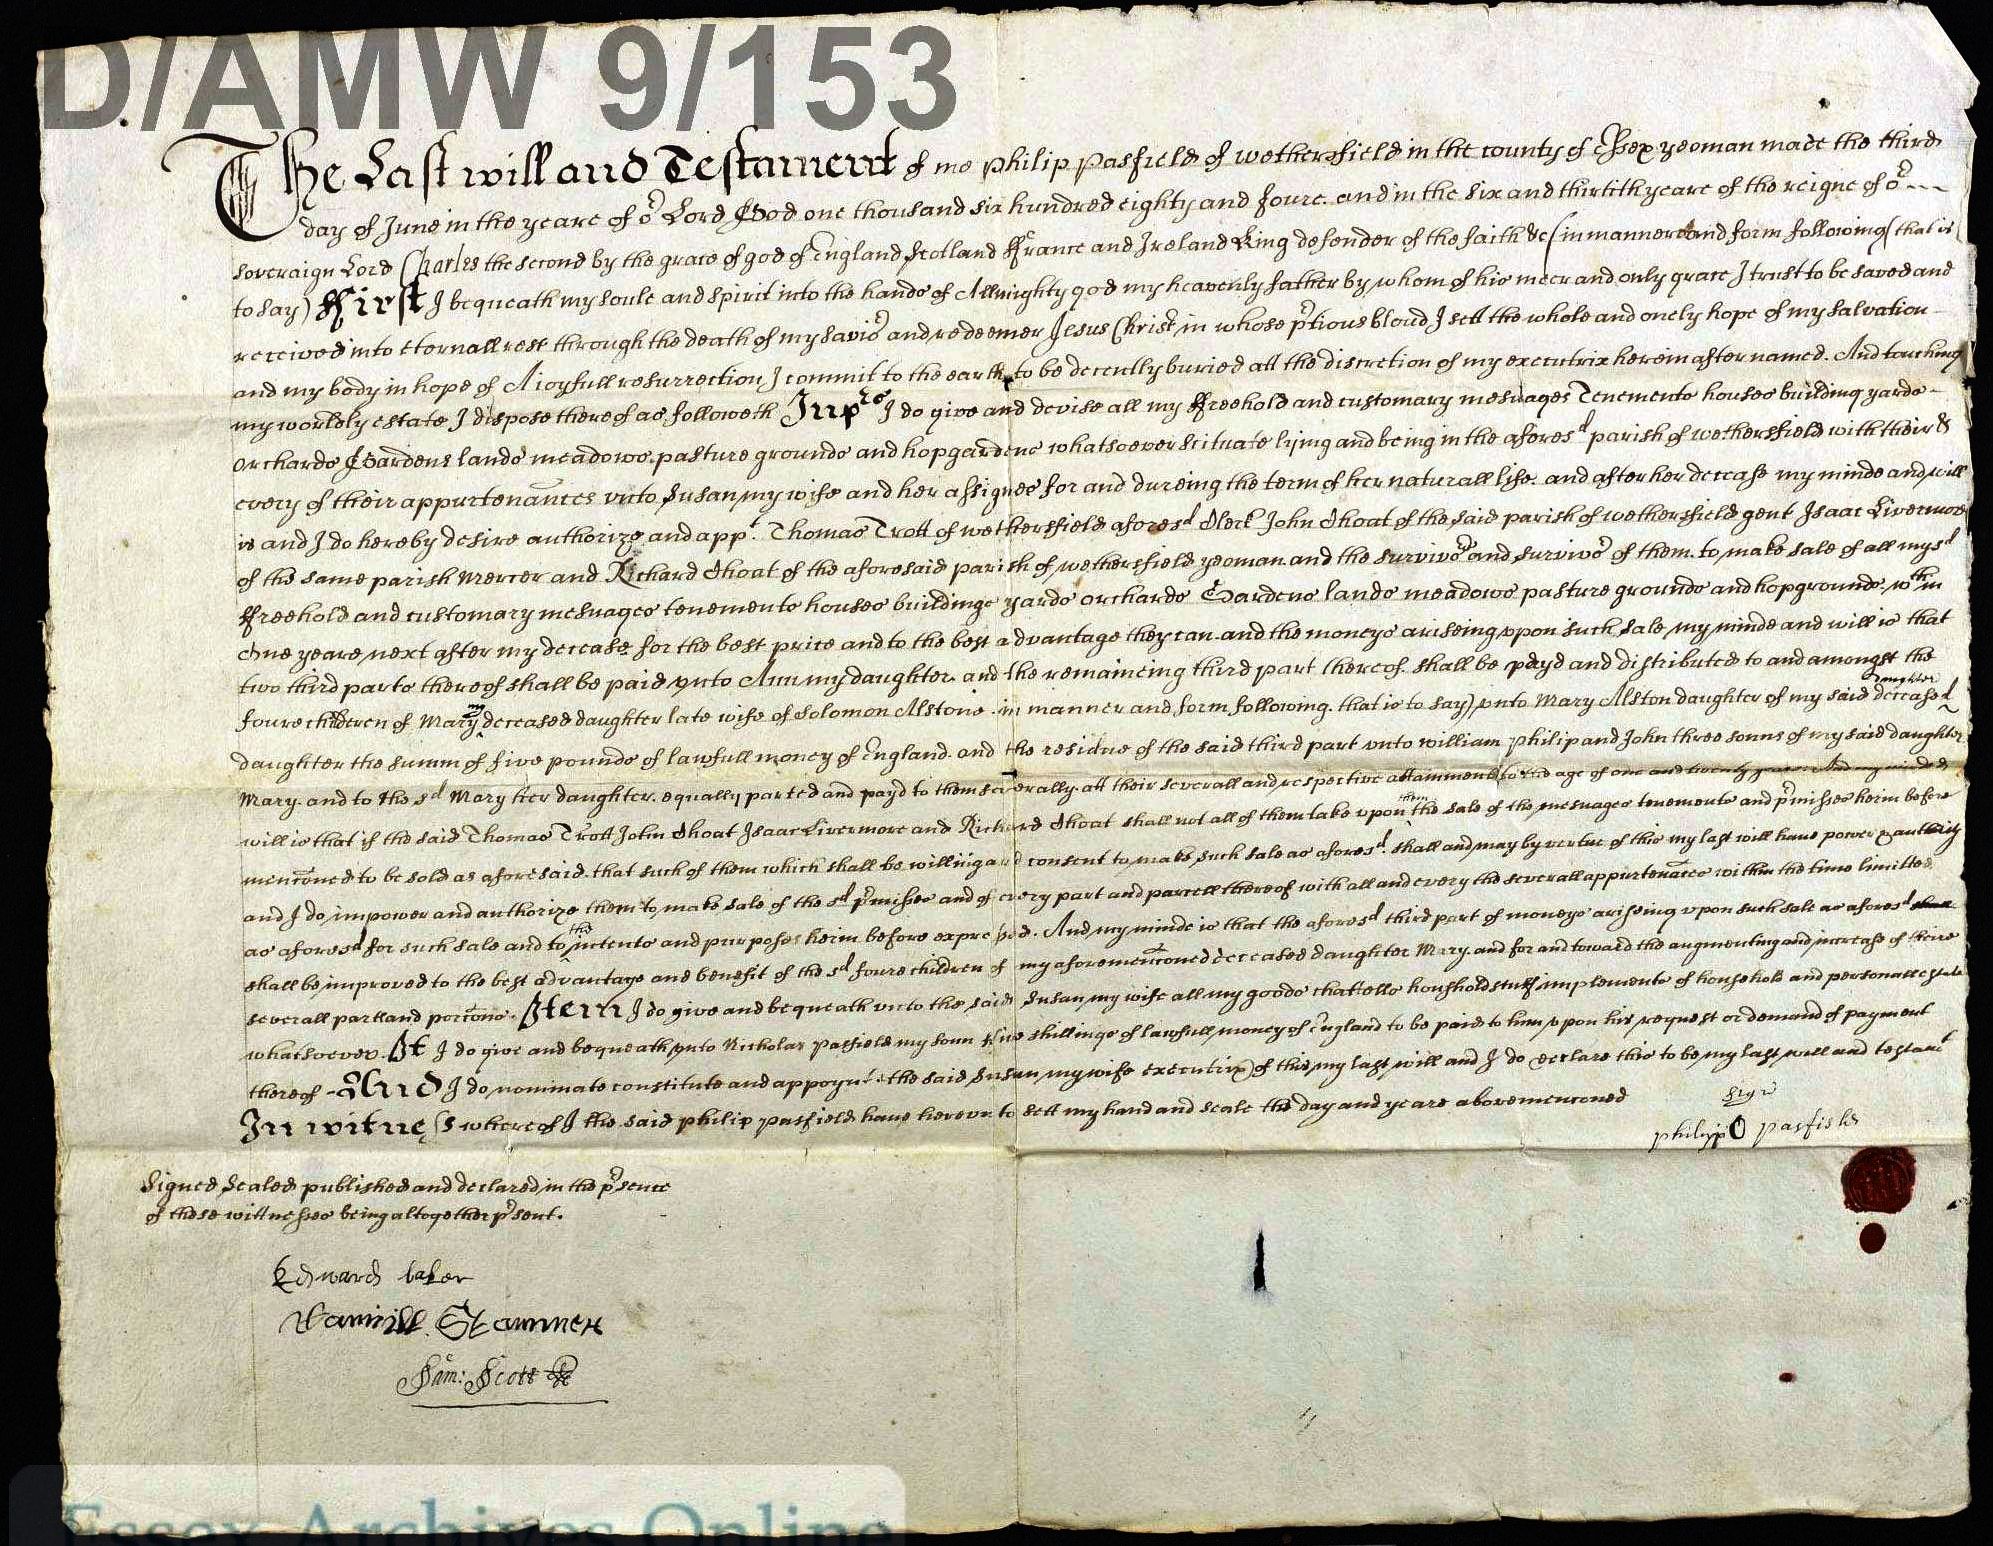 D/AMW 9/153
The Last will and Testament of me Philip Pasfield of wethersfield in the county of Essex yeoman made the third
day of June in the yeare of or Lord God one thousand six hundred eighty and foure. and in the six and thirtith yeare of the reigne of or
soveraign Lord Charles the second by the grace of god of England Scotland ffrance and Ireland King defender of the faith &c (in manner and form following (that is
to say) ffirst I bequeath my soule and spirit into the hands of Allmighty god my heavenly father by whom of his meer and only grace I trust to be saved and
received into eternall rest through the death of my savior and redeemer Jesus Christ in whose ptious bloud I sett the whole and onely hope of my salvation
and my body in hope of A ioyfull resurrection I commit to the earth to be decently buried att the discretion of my executrix herein after named. And touching
my worldly estate I dispose thereof as followeth Inprs I do give and devise all my ffreehold and customary mesuages Tenements houses building yards
orchards Gardens lands meadows pasture grounds and hopgardens whatsoever scituate lying and being in the aforesd parish of wethersfield with their &
every of their appurtenances unto Susan my wife and her assignes for and dureing the term of her naturall life. and after her decease my minde and will
is and I do hereby desire authorize and appt. Thomas Trott of wethersfield aforesd Clerk John Choat of the said parish of wethersfield gent Isaac Livermore
of the same parish Mercer and Richard Choat of the aforesaid parish of wethersfield yeoman and the survivors and survivor of them. to make sale of all my sd
ffreehold and customary mesuages tenements houses buildings yards orchards Gardens lands meadows pasture grounds and hopgrounds wthin
One yeare next after my decease for the best price and to the best advantage they can. and the moneys ariseing upon such sale my minde and will is that
two third parts thereof shall be paid unto Ann my daughter. and the remaineing third part thereof. shall be payd and distributed to and amongst the
foure children of Mary my deceased daughter late wife of Solomon Alstone in manner and form following. that is to say) unto Mary Alston daughter of my said deceased daughter
daughter the summ of five pounds of lawfull money of England. and the residue of the said third part unto william Philip and John three sonns of my said daughter
Mary. and to the sd Mary her daughter. equally parted and payd to them severally. att their severall and respective attainments to the age of one and twenty yeares. And my minde &
will is that if the said Thomas Trott John Choat Isaac Livermore and Richard Choat shall not all of them take upon them the sale of the mesuages tenements and pmisses herin before
mencōned to be sold as aforesaid. that such of them which shall be willing and consent to make such sale as aforesd. shall and may by vertue of this my last will have power & authority
and I do impower and authorize them to make sale of the sd pmisses and of every part and parcell thereof with all and every the severall appurtenances within the time limitted
as aforesd for such sale and to the intents and purposes herin before expressed. And my minde is that the aforesd third part of moneys arissing upon such sale as aforesd shall
shall be improved to the best advantage and benefit of the sd foure children of my aforemencōned deceased daughter Mary. and for and toward the augmenting and increase of theire
severall part and porcōns. Item I do give and bequeath unto the said Susan my wife all my goods chattells houshold stuff implements of household and personall estate
whatsoever. It I do give and bequeath unto Nicholas Pasfield my sonn five shillings of lawfull money of England to be paid to him upon his request or demand of payment
thereof - And I do nominate constitute and appoynt the said Susan my wife executrix of this my last will and I do declare this to be my last will and testamt
In witness whereof I the said Philip Pasfield have hereunto sett my hand and seale the day and yeare abovemencōned
sign
Philipp O Pasfield
Signed Sealed published and declared in the psence
of these wittnesses being altogether psent.
Edward baker
Tamvill Stammer
Sam: Scott
Essex Archives Online